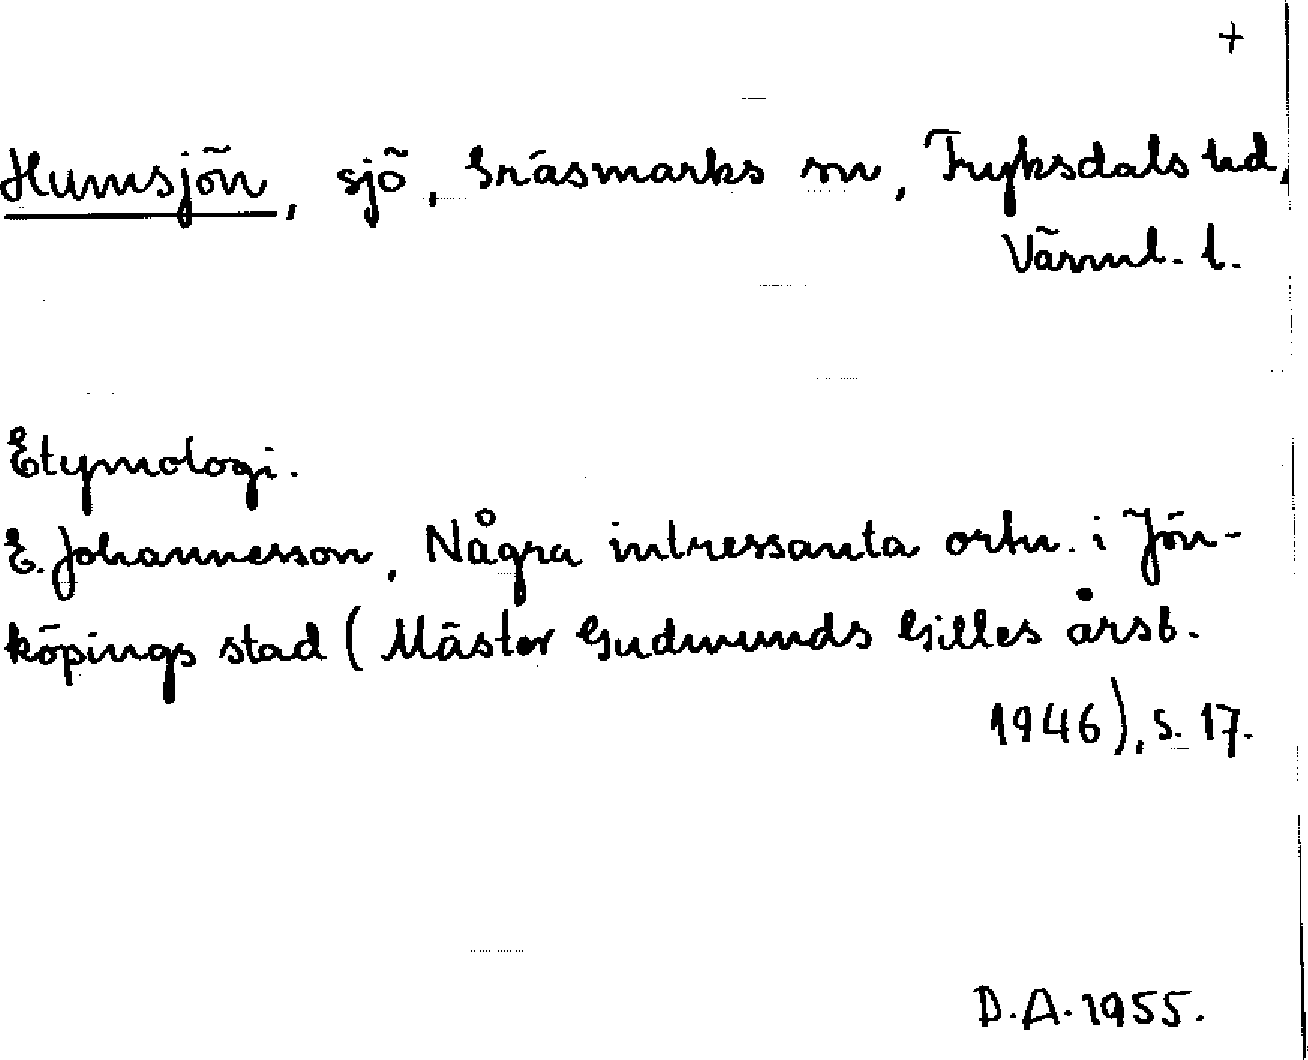 +
Humsjön, sjö, Gräsmarks sn, Fryksdals hd,
Värml. l.
Etymologi.
E. Johannesson, Några intressanta ortn. i Jön-
köpings stad (Mäster Gudmunds Gilles årsb.
1946), s. 17.
D.A. 1955.